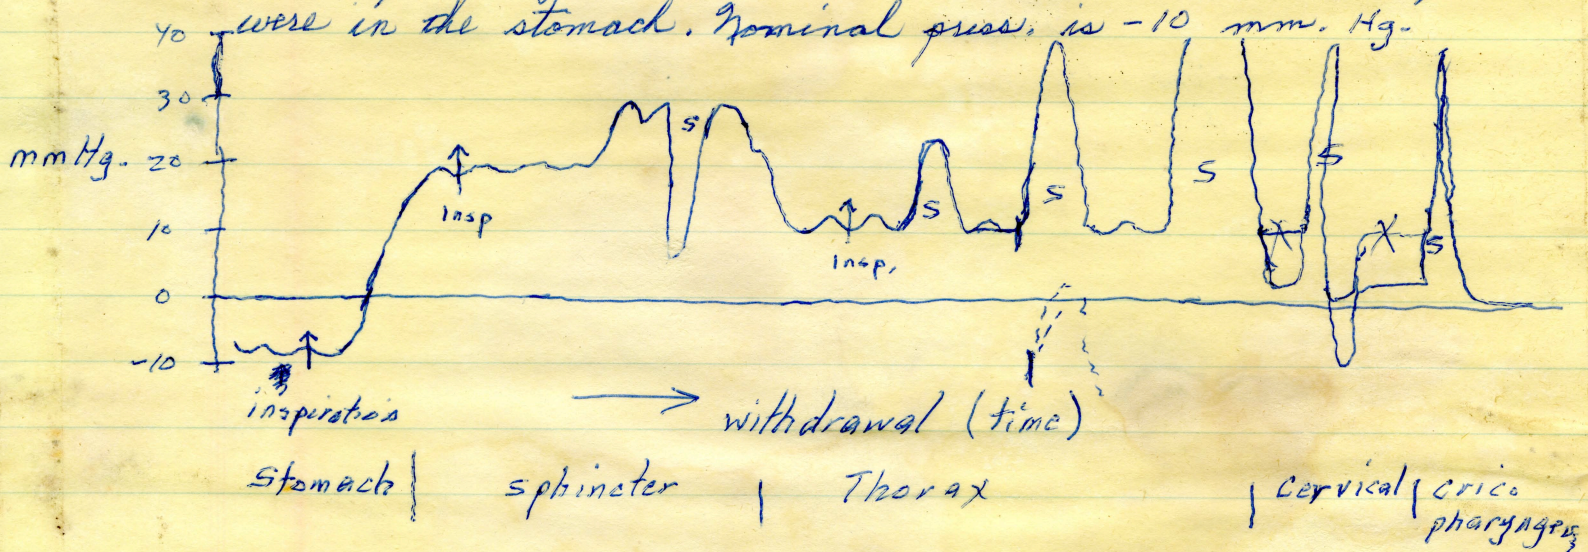 were in the stomach. Nominal press. is -10 mm. Hg.
40
30
mmHg. 20
10
0
-10
S
Insp
S
Insp.
S
S
X
S
X
S
inspiration
withdrawal (time)
Stomach | sphincter | Thorax | Cervical | crico
pharyngeus